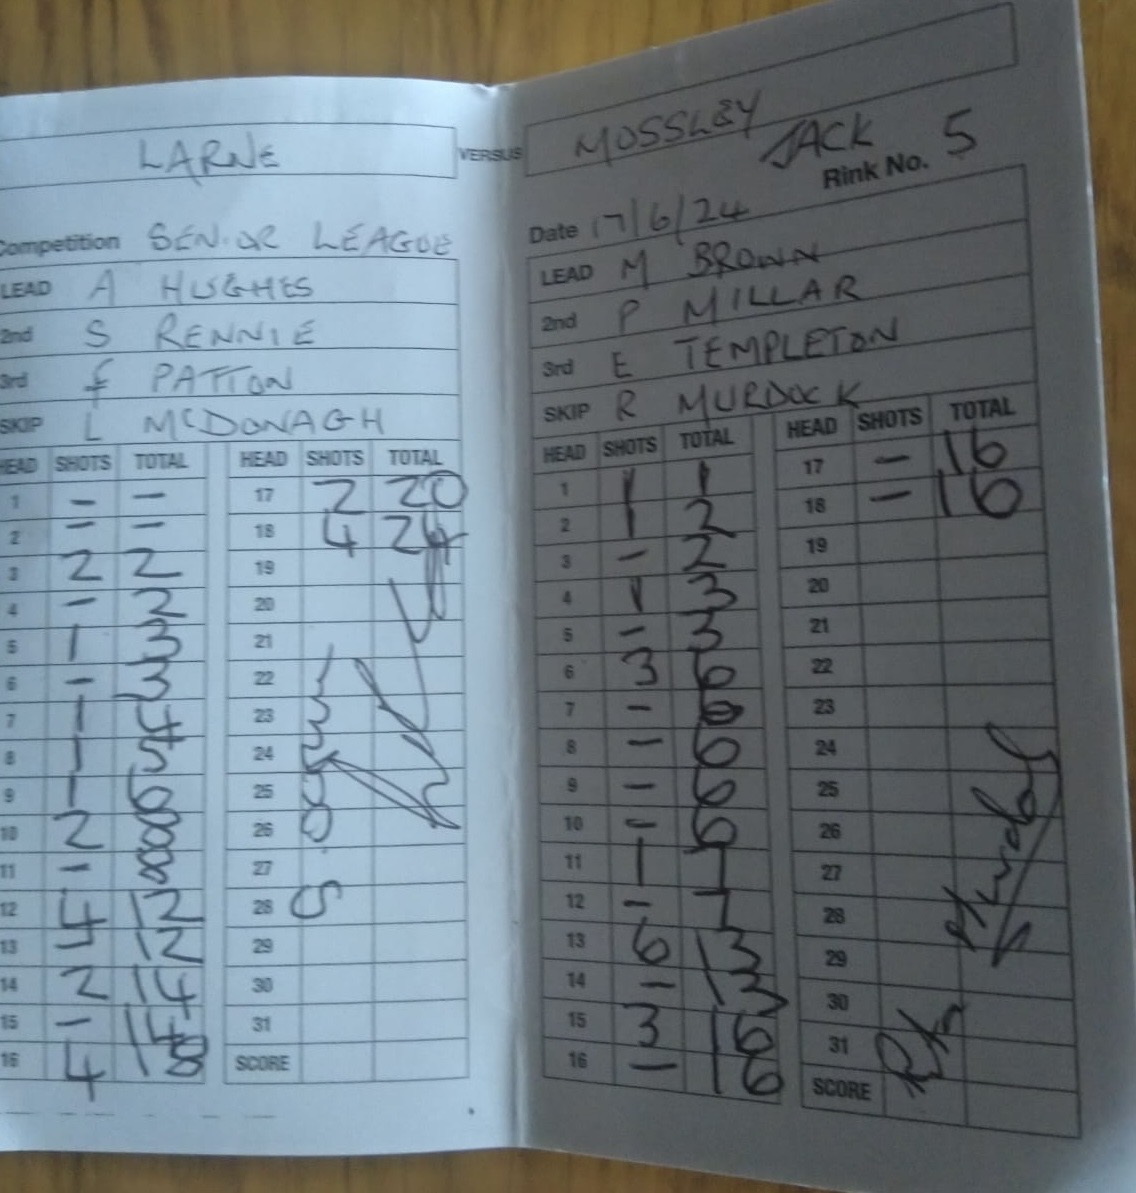 LARNE
VERSUS
MOSSLEY
JACK
Rink No. 5
Competition SENIOR LEAGUE
LEAD A HUGHES
2nd S RENNIE
3rd F PATTON
SKIP L McDONAGH
HEAD SHOTS TOTAL
1 - -
2 - -
3 2 2
4 - 2
5 1 3
6 - 3
7 1 4
8 1 5
9 1 6
10 2 8
11 - 8
12 4 12
13 - 12
14 2 14
15 - 14
16 4 18
HEAD SHOTS TOTAL
17 2 20
18 4 24
19
20
21
22
23
24
25
26
27
28
29
30
31
SCORE
Date 17/6/24
LEAD M BROWN
2nd P MILLAR
3rd E TEMPLETON
SKIP R MURDOCK
HEAD SHOTS TOTAL
1 1 1
2 1 2
3 - 2
4 1 3
5 - 3
6 3 6
7 - 6
8 - 6
9 - 6
10 - 6
11 1 7
12 - 7
13 6 13
14 - 13
15 3 16
16 - 16
HEAD SHOTS TOTAL
17 - 16
18 - 16
19
20
21
22
23
24
25
26
27
28
29
30
31
SCORE